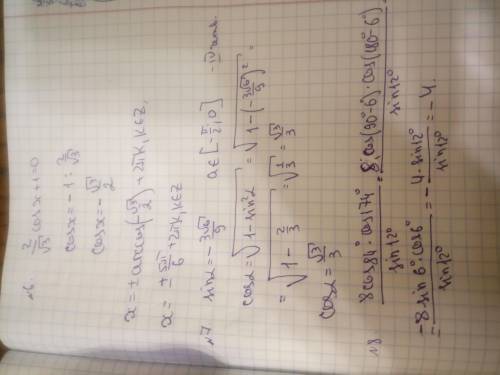 №6. 2/√3 cosx+1=0
cosx=-1 : 2/√3
cosx=-√3/2
x=±arccos(-√3/2)+2πk, k∈Z,
x=±5π/6+2πk, k∈Z
№7 sinα=-3√6/9 α∈[-π/2; 0] -IV четв.
cosα=√(1-sin²α) =√(1-(-3√6/9)²) =
=√(1-2/3) =√(1/3)=√3/3
cosα=√3/3
№8 8cos84°·cos174°/sin12° = 8·cos(90°-6)·cos(180°-6°)/sin12°
=-8sin6°·cos6°/sin12° =-4·sin12°/sin12° =-4.